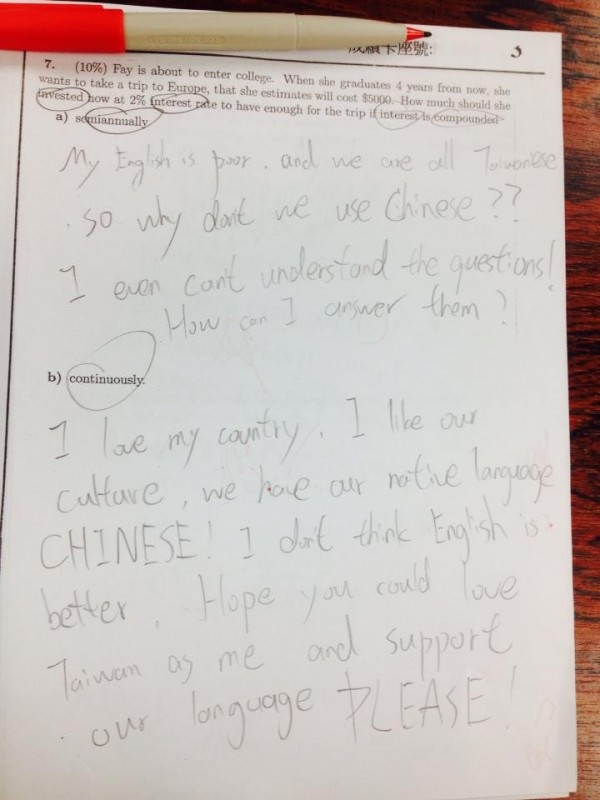 成績卡座號:
3
7. (10%) Fay is about to enter college. When she graduates 4 years from now, she
wants to take a trip to Europe, that she estimates will cost $5000. How much should she
invested now at 2% interest rate to have enough for the trip if interest is compounded
a) semiannually
My English is poor. and we are all Taiwanese
so why don't we use Chinese ??
I even can't understand the questions!
How can I answer them ?
b) continuously.
I love my country. I like our
culture, we have our native language
CHINESE! I don't think English is
better. Hope you could love
Taiwan as me and support
our language PLEASE!